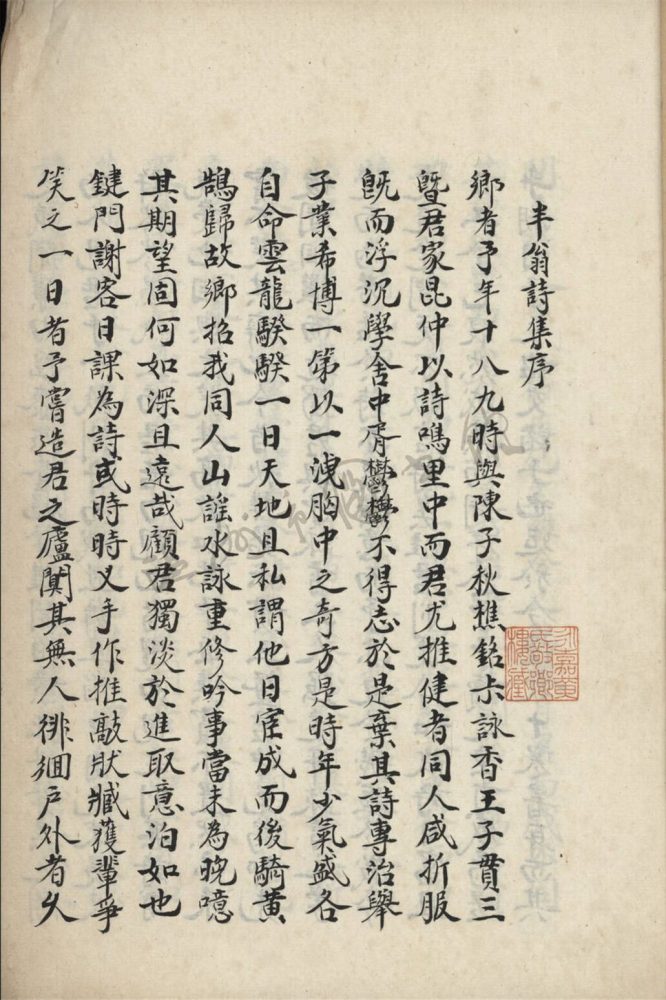 半翁詩集序
鄉者予年十八九時與陳子秋樵銘尗詠香王子貫三
暨君家昆仲以詩鳴里中而君尤推健者同人咸折服
旣而浮沉學舍中胥鬱鬱不得志於是棄其詩專治舉
子業希博一第以一洩胸中之奇方是時年少氣盛各
自命雲龍騤騤一日天地且私謂他日宦成而後騎黃
鵠歸故鄉招我同人山謠水詠重修吟事當未為晚噫
其期望固何如深且遠哉顧君獨淡於進取意泊如也
鍵門謝客日課為詩或時時叉手作推敲狀臧獲輩爭
笑之一日者予嘗造君之廬闃其無人徘徊戶外者久
永嘉黃氏敬鄉樓藏